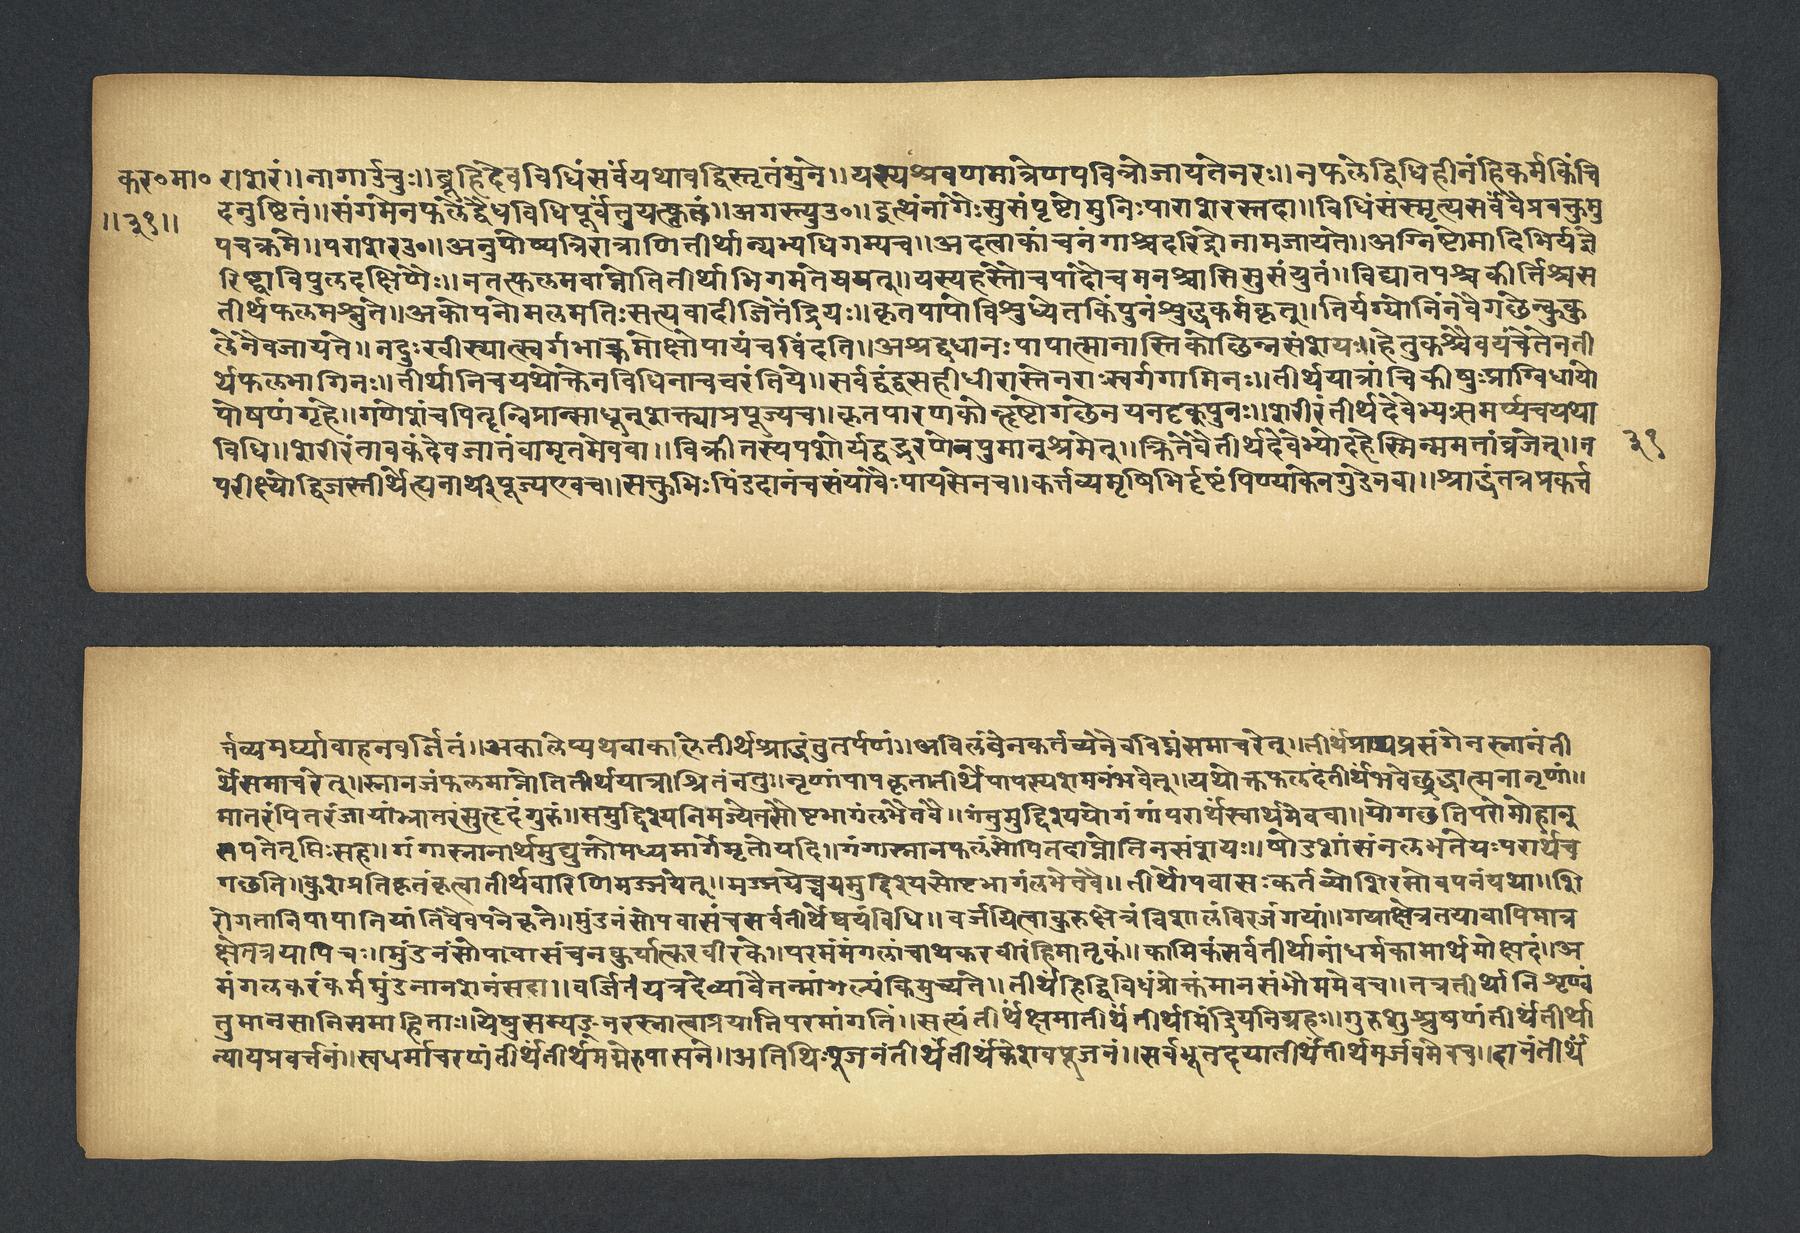 कर॰मा॰ राशरं॥नागाऊचुः॥ब्रूहिदेवविधिंसर्वंयथावद्विस्तृतंमुने॥यस्यश्रवणमात्रेणपवित्रोजायतेनरः॥नफलेद्विधिहीनंहिकर्मकिंचि
॥३९॥ दनुष्ठितं॥संगमेनफलेद्वैधविधिपूर्वंतुयत्कृतं॥अगस्त्यउ॰॥इत्थंनागैःसुसंपृष्टोमुनिःपाराशरस्तदा॥विधिंसंस्मृत्यसर्वंवैप्रवक्तुमु
पचक्रमे॥पराशरउ॰॥अनुपोष्यत्रिरात्राणितीर्थान्यभ्यधिगम्यच॥अदत्वाकांचनंगाश्चदरिद्रोनामजायते॥अग्निष्टोमादिभिर्यज्ञै
रिष्ट्वाविपुलदक्षिणैः॥नतत्फलमवाप्नोतितीर्थाभिगमतेययत्॥यस्यहस्तौचपादौचमनश्चातिसुसंयुतं॥विद्यातपश्चकीर्तिश्चस
तीर्थफलमश्नुते॥अकोपनोमलमतिःसत्यवादीजितेंद्रियः॥कृतपापोविशुध्येतकिंपुनःशुद्धकर्मकृत्॥तिर्यग्योनिंनवैगछेत्कुकु
लेनैवजायते॥नदुःखीस्यात्स्वर्गभाक्चमोक्षोपायंचविंदति॥अश्रद्दधानःपापात्मानास्तिकोछिन्नसंशयः॥हेतुकश्चैवयंचैतेनती
र्थफलभागिनः॥तीर्थानिचयथोक्तेनविधिनाचचरंतिये॥सर्वद्वंद्वसहीधीरास्तेनराःस्वर्गगामिनः॥तीर्थयात्रांचिकीर्षुःप्राग्विधायो
पोषणंगृहे॥गणेशंचपितॄन्विप्रान्साधून्शक्त्याप्रपूज्यच॥कृतपारणकोत्दृष्टोगछेनयनदृक्पुनः॥शरीरंतीर्थदेवेभ्यःसमर्प्यचयथा
विधि॥शरीरंतावकंदेवजातंवामृतमेववा॥विक्रीतस्यपशोर्यद्वद्धरणेनपुमान्श्रमेत्॥क्रितेवैतीर्थदेवेभ्योदेहेस्मिन्ममतांव्रजेत्॥न ३९
परीक्ष्योद्विजस्तीर्थेत्प्यनाथःपूज्यएवच॥सक्तुभिःपिंडदानंचसंयावैःपायसेनच॥कर्त्तव्यमृषिभिर्दृष्टंपिण्याकेनगुडेनवा॥श्राद्धंतत्रप्रकर्त्त
र्त्तव्यमर्घ्यावाहनवर्जितं॥अकालेप्यथवाकालेतीर्थश्राद्धंतुतर्पणं॥अविलंबेनकर्तव्यंनैवविघ्नंसमाचरेत्॥तीर्थंप्राप्यप्रसंगेनस्नानंती
र्थेसमाचरेत्॥स्नानजंफलमाप्नोतितीर्थयात्राश्रितंनतु॥नृणांपापकृतातीर्थेपापस्यशमनंभवेत्॥यथोक्तफलदंतीर्थंभवेच्छुद्धात्मनानृणां॥
मातरंपितरंजायांभ्रातरंसुहृदंगुरुं॥समुद्दिश्यनिमज्येतसोष्टभागंलभेतवै॥गंतुमुद्दिश्ययोगंगांपरार्थंस्वार्थमेववा॥योगछतिपरोमोहान्
सपतेतृभिःसह॥गंगास्नानार्थमुद्युक्तोमध्यमार्गेमृतोयदि॥गंगास्नानफलंसोपितदाप्नोतिनसंशयः॥षोडशांसंनलभतेयःपरार्थंच
गछति॥कुशप्रतिकृतंकृत्वातीर्थवारिणिमज्जयेत्॥मज्जयेच्चयमुद्दिश्यसोष्टभागंलभेतवै॥तीर्थोपवासःकर्तव्योशिरसोवपनंयथा॥शि
रोगतानिपापानियांतिवैवपनेकृते॥मुंडनंसोपवासंचसर्वतीर्थेष्वयंविधि॥वर्जयित्वाकुरुक्षेत्रंविशालंविरजंगयां॥गयाक्षेत्रतयावापिमात्र
क्षेत्रत्रयापिचः॥मुंडनंसोपावासंचनकुर्यात्करवीरके॥परमंमंगलांचाथकरवीरंहिमातृकं॥कामिकंसर्वतीर्थानांधर्मकामार्थमोक्षदं॥अ
मंगलकरंकर्ममुंडनानशनंसदा॥वर्जितंयत्रदेव्यावैतन्मांगल्यंकिमुच्यते॥तीर्थंहिद्विविधंप्रोक्तंमानसंभौममेवच॥तत्रतीर्थानिशृण्वं
तुमानसानिसमाहिताः॥येषुसम्यङ्नरस्नात्वाप्रयातिपरमांगतिं॥सत्यंतीर्थंक्षमातीर्थंतीर्थमिंद्रियनिग्रहः॥गुरुशुश्रुषणंतीर्थंतीर्था
न्यायप्रवर्त्तनं॥स्वधर्माचरणंतीर्थंतीर्थमग्नेरुपासने॥अतिथिःपूजनंतीर्थंतीर्थंकेशवपूजनं॥सर्वभूतदयातीर्थंतीर्थमर्जवमेवच॥दानंतीर्थं